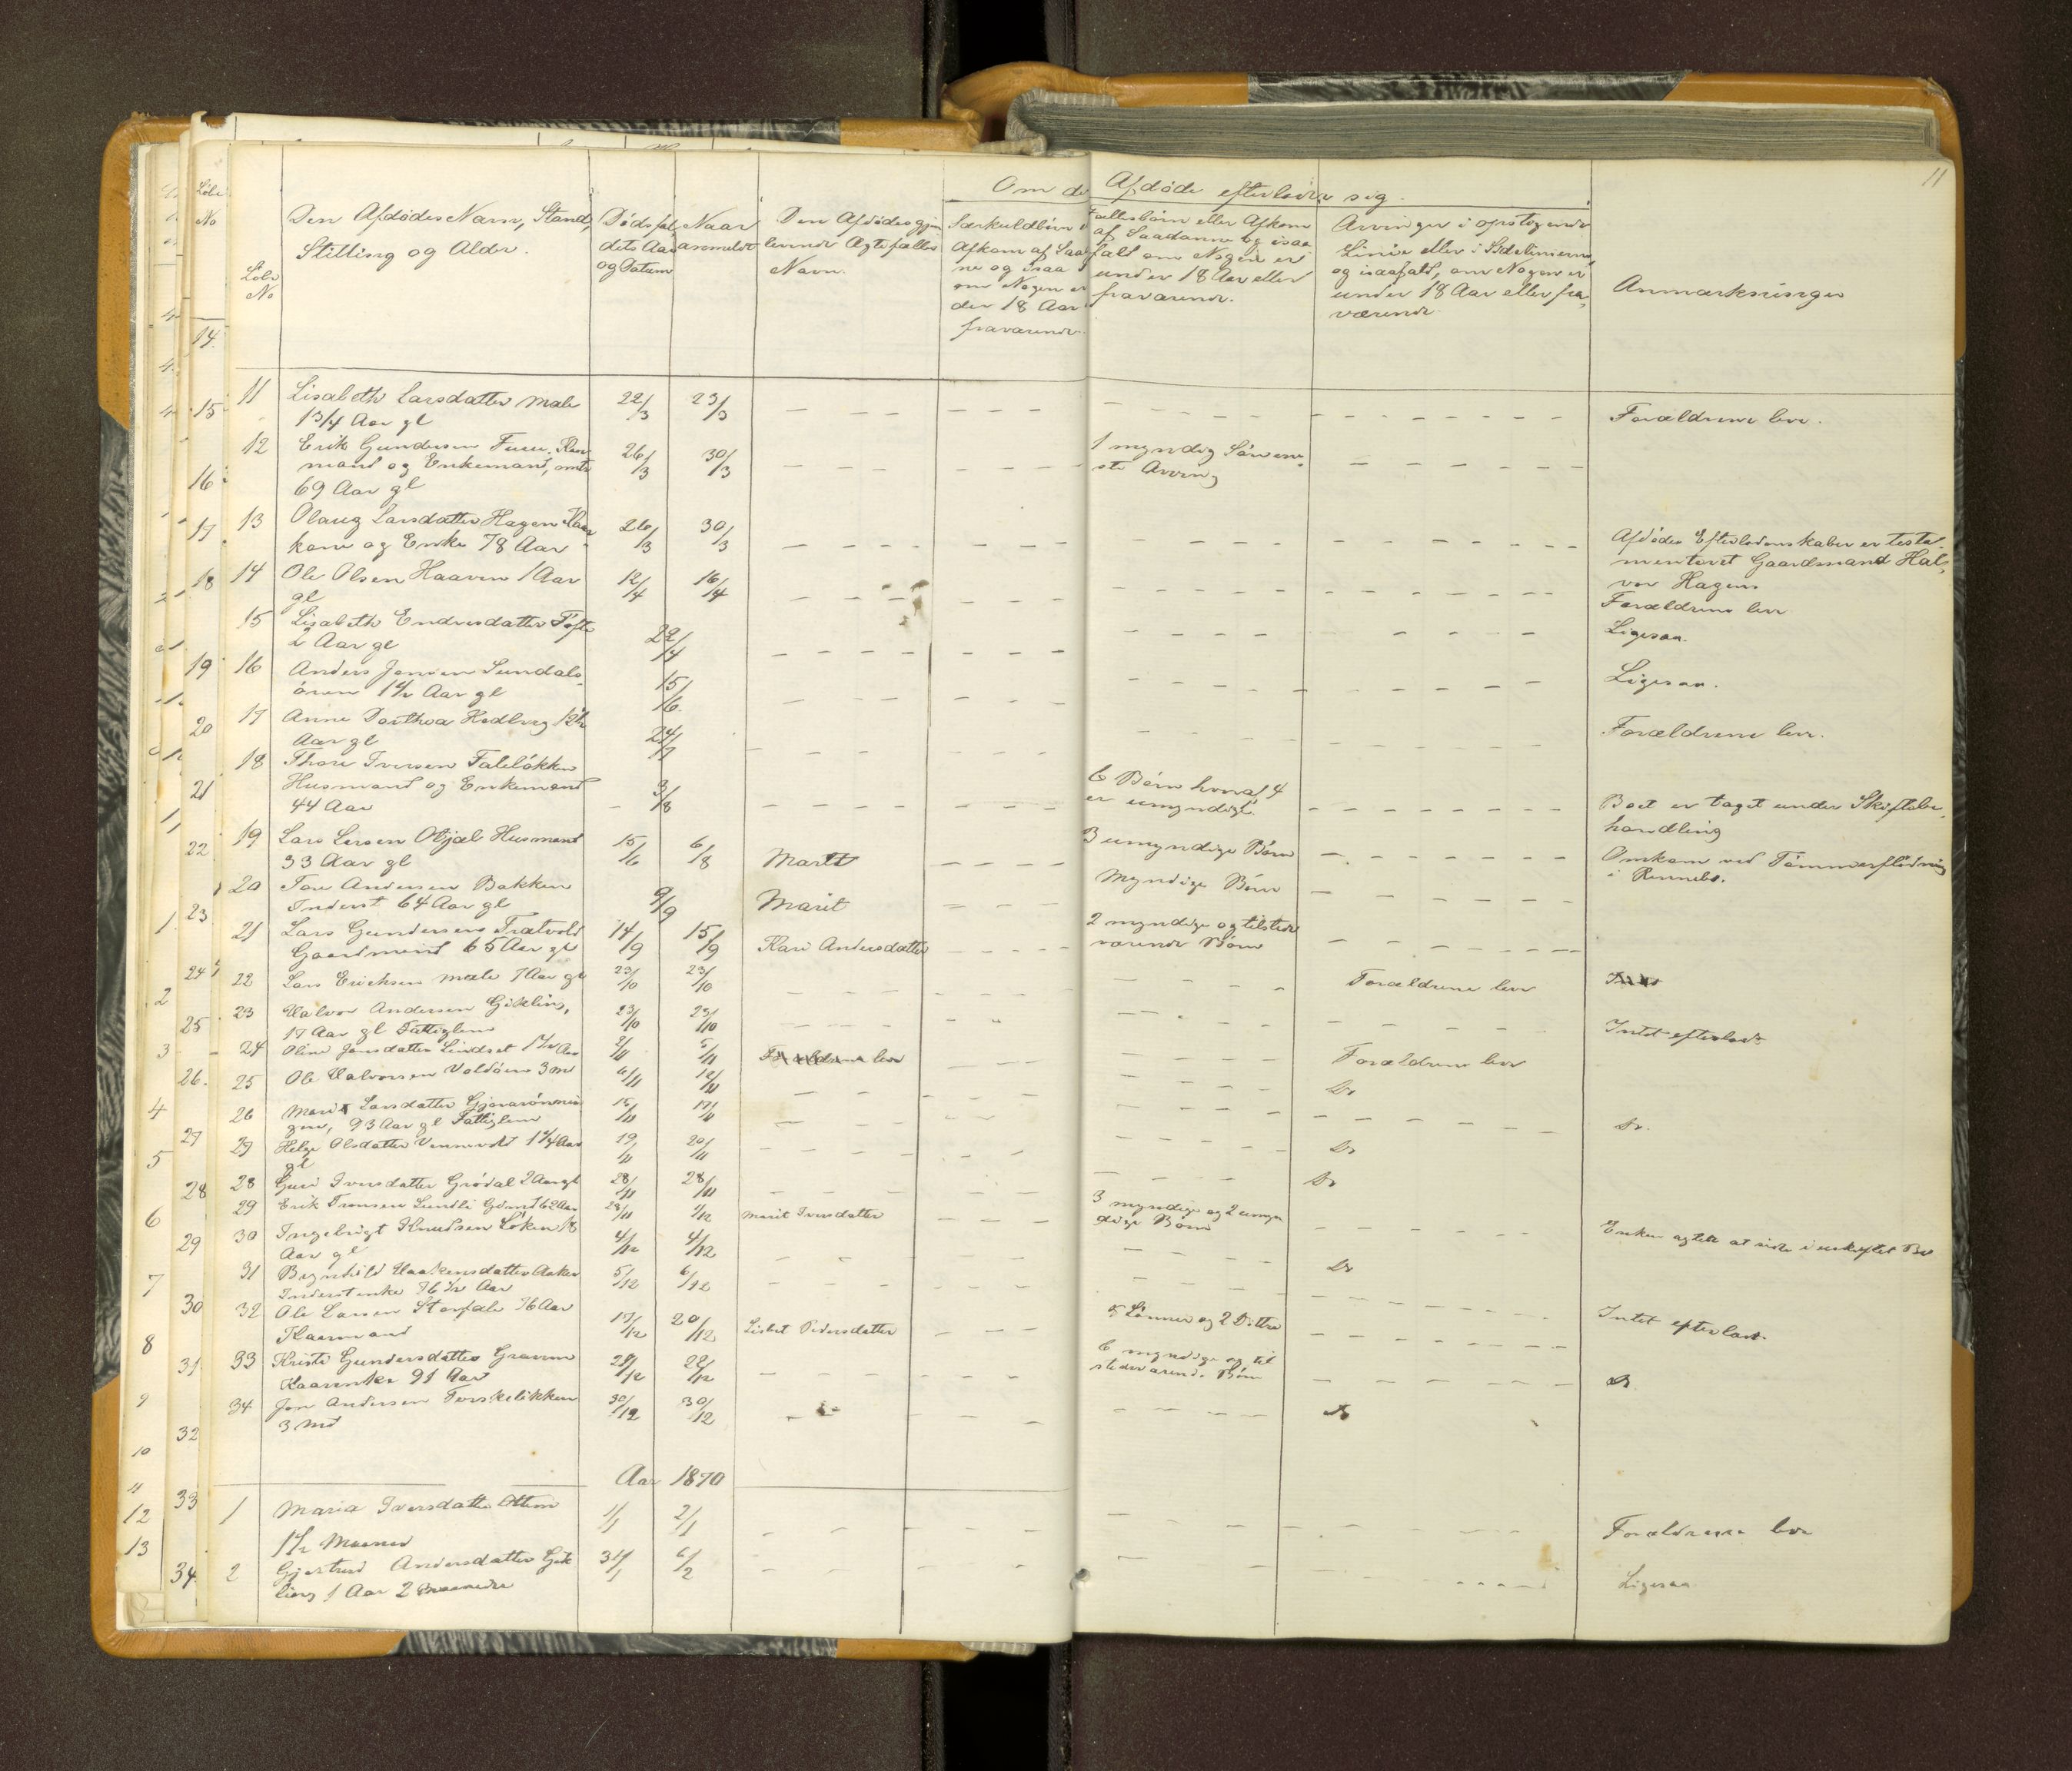 11
Om de Afdøde efterlever sig
Løbe No
Den Afdødes Navn, Stand, Stilling og Alder.
Dødsfaldets Aar og Datum
Naar anmeldt
Den Afdødes gjenlevende Ægtefælles Navn.
Særkuldbørn
Afkom af Saa
ne og isaa
om Nogen er
der 18 Aar
fraværende.
Fællesbørn eller Afkom
af Saadanne og isaa
fald om Nogen er
under 18 Aar eller
fraværende.
Arvinger i opstigende
Linie eller i Sidelinierne
og isaafald, om Nogen er
under 18 Aar eller fra,
værende
Anmærkninger
11 Lisabeth Larsdatter Male 22/3 23/3 Forældrene lever.
1 3/4 Aar gl
12 Erik Gundersen Furu, Kaar 26/3 30/3 1 myndig Søn ene
mand og Enkemand, omtr ste Arving
69 Aar gl
13 Olaug Larsdatter Hagen Kaar 26/3 30/3 Afdødes Efterladenskaber er testa
kone og Enke 78 Aar menteret Gaardmand Hal,
vor Hagen
14 Ole Olsen Haaven 1 Aar 12/4 16/4 Forældrene lever
gl
15 Lisabeth Endresdatter Tofte 22/4 Ligesaa.
2 Aar gl
16 Anders Jonsen Sundals 15/6 Ligesaa.
øren 1 1/2 Aar gl
17 Anne Dorthea Hedberg 12 1/2 24/7 Forældrene lever.
Aar gl
18 Thore Iversen Faleløkken
Husmand og Enkemand 3/8 6 Børn hvoraf 4 Boet er taget under Skiftebe
44 Aar er umyndige. handling
19 Lars Larsen Husmand 15/6 6/8 Marit 3 umyndige Børn Omkom ved Tømmerflødning
33 Aar gl i Rennebo.
20 Tore Andersen Bakken 9/9 Marit Myndige Børn
Inderst 64 Aar gl
21 Lars Gundersen Trætvold 14/9 15/9 Kari Andersdatter 2 myndige og tilstede
Gaardmand 65 Aar gl værende Børn
22 Lars Erichsen Male 7 Aar gl 23/10 23/10 Forældrene lever
23 Halvor Andersen Gikling, 23/10 23/10 Intet efterladt
17 Aar gl Fattiglem
24 Oline Jonsdatter Lindset 1 1/2 Aar 2/11 5/11 Forældrene lever Forældrene lever
25 Ole Halvorsen Voldøen 3 Md 6/11 12/11 Do
26 Marit Larsdatter 15/11 17/11 Do.
gen, 93 Aar gl Fattiglem
27 Helge Olsdatter Vennevold 1 1/4 Aar 19/11 20/11 Do
gl
28 Guri Iversdatter Grødal 2 Aar gl 28/11 28/11 Do
29 Erik Tronsen Sundli Gdmd 62 Aar 28/11 2/12 Marit Iversdatter 3 myndige og 2 umyn Enken agter at sidde i uskiftet Bo
dige Børn
30 Ingebrigt Knudsen Løken 18 4/12 4/12 Do
Aar gl
31 Bryndild Haakensdatter Aaker 5/12 6/12 Intet efterladt
Inderst enke 76 1/2 Aar
32 Ole Larsen Storfale 76 Aar 17/12 20/12 Lisbet Pedersdatter 5 Sønner og 2 Døttre
Kaarmand
33 Kristi Gundersdatter Gravem 21/12 22/12 6 myndige og til Do
Kaarenke 91 Aar stedeværende Børn
34 Jon Andersen Torskeløkken 30/12 30/12 Do
3 Md
Aar 1870
1 Maria Iversdatter Ottem 1/1 2/1 Forældrene lever
1 1/2 Maaned
2 Gjertrud Andersdatter Gik 31/1 6/2 Ligesaa
ling 1 Aar 2 Maaneder